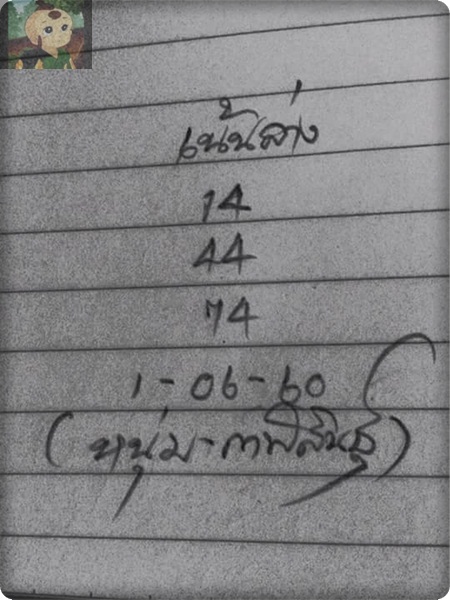 เน้นล่าง
14
44
74
1-06-60
(หนุ่ม-กาฬสินธุ์)